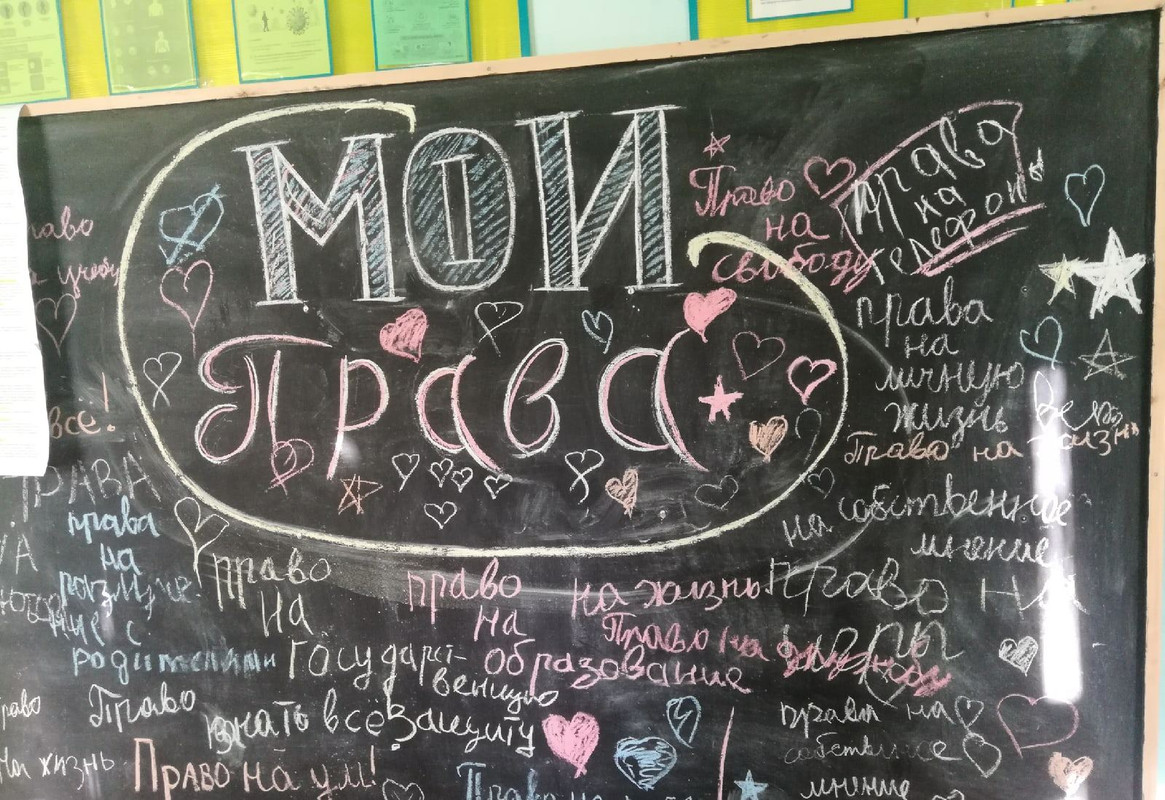 МОИ
Права
Право
на
свободу
права
на
телефон
права
на
личную
жизнь
Право на жизнь
на собственное
мнение
все!
ПРАВА
права
на
с
родителями
право
на
Государст-
венную
защиту
право
на
образование
на жизнь
Право на
право на
игры
Право
знать всё
на жизнь
Право на ум!
права на
собственное
мнение